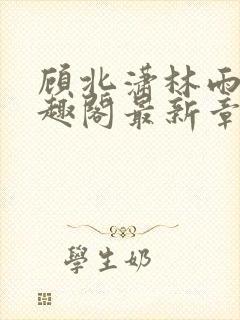 顾北潇林雨
趣阁最新章
學生奶